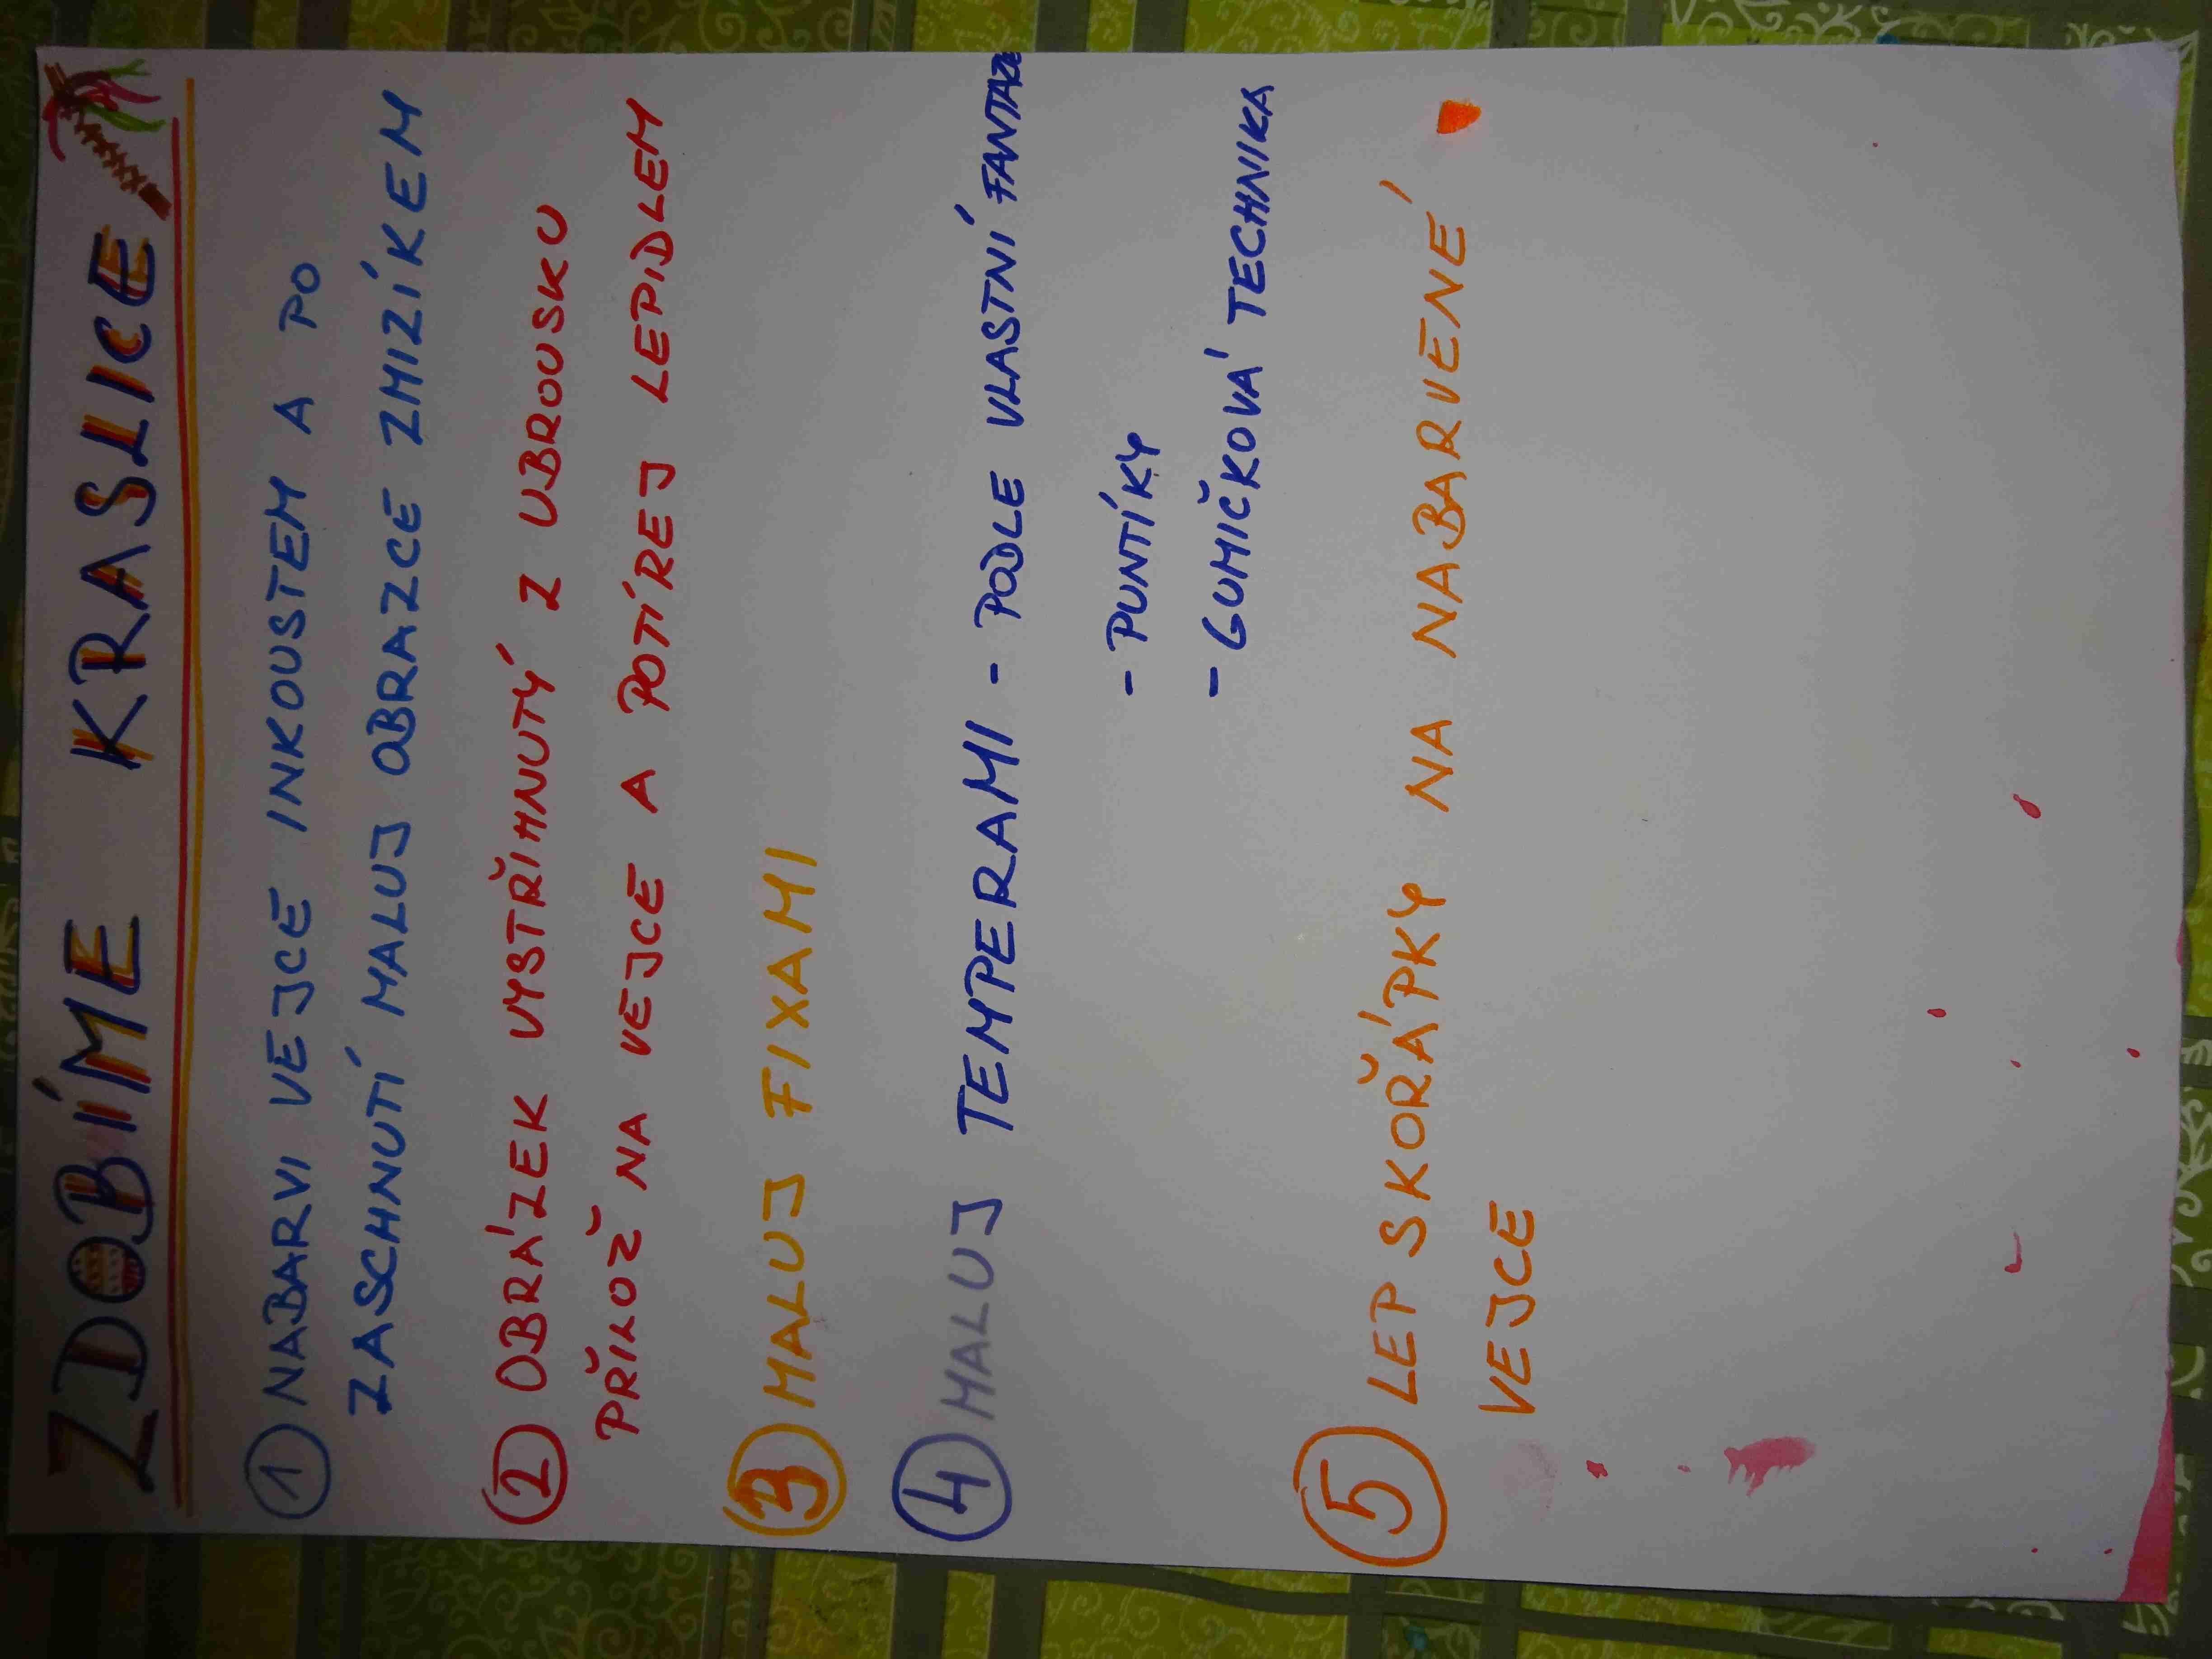 ZDOBÍME KRASLICE
1 NABARVI VEJCE INKOUSTEM A PO
ZASCHNUTÍ MALUJ OBRAZCE ZMIZÍKEM
2 OBRÁZEK VYSTŘIHNUTÝ Z UBROUSKU
PŘILOŽ NA VEJCE A POTÍREJ LEPIDLEM
3 MALUJ FIXAMI
4 MALUJ TEMPERAMI - PODLE VLASTNÍ
- PUNTÍKY
- GUMIČKOVÁ TECHNIKA
5 LEP SKOŘÁPKY NA NABARVENÉ
VEJCE